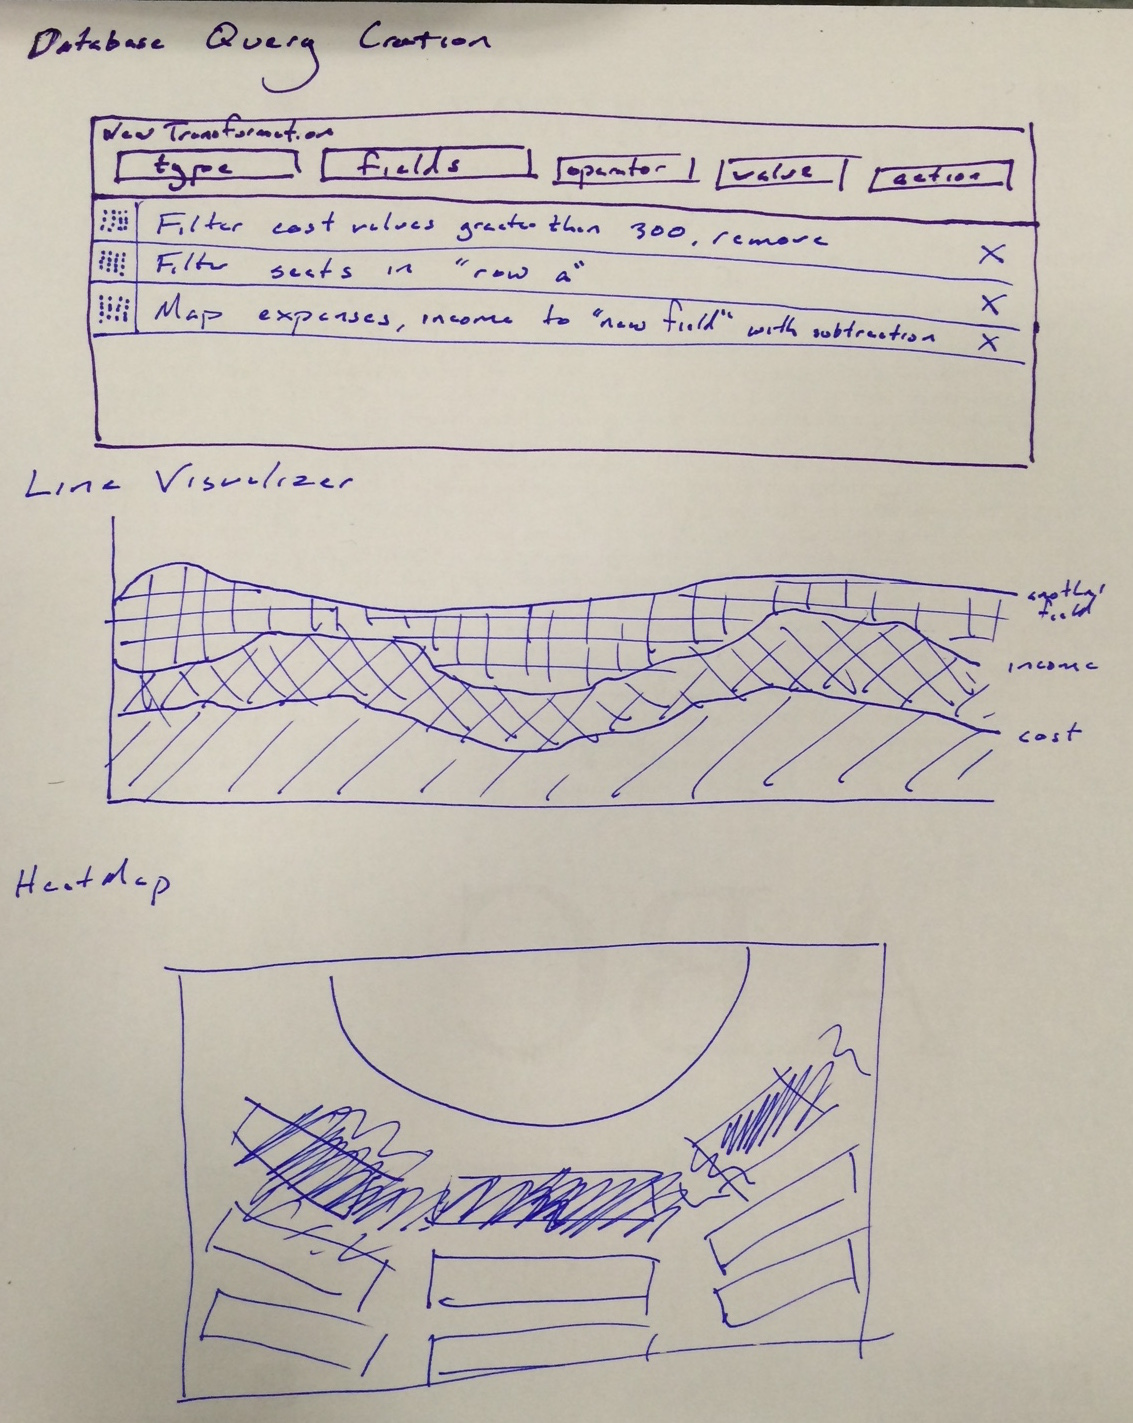 Database Query Creation
New Transformation
type fields operator value action
Filter cost values greater than 300, remove X
Filter seats in "row a" X
Map expenses, income to "new field" with subtraction X
Line Visualizer
another
field
income
cost
HeatMap